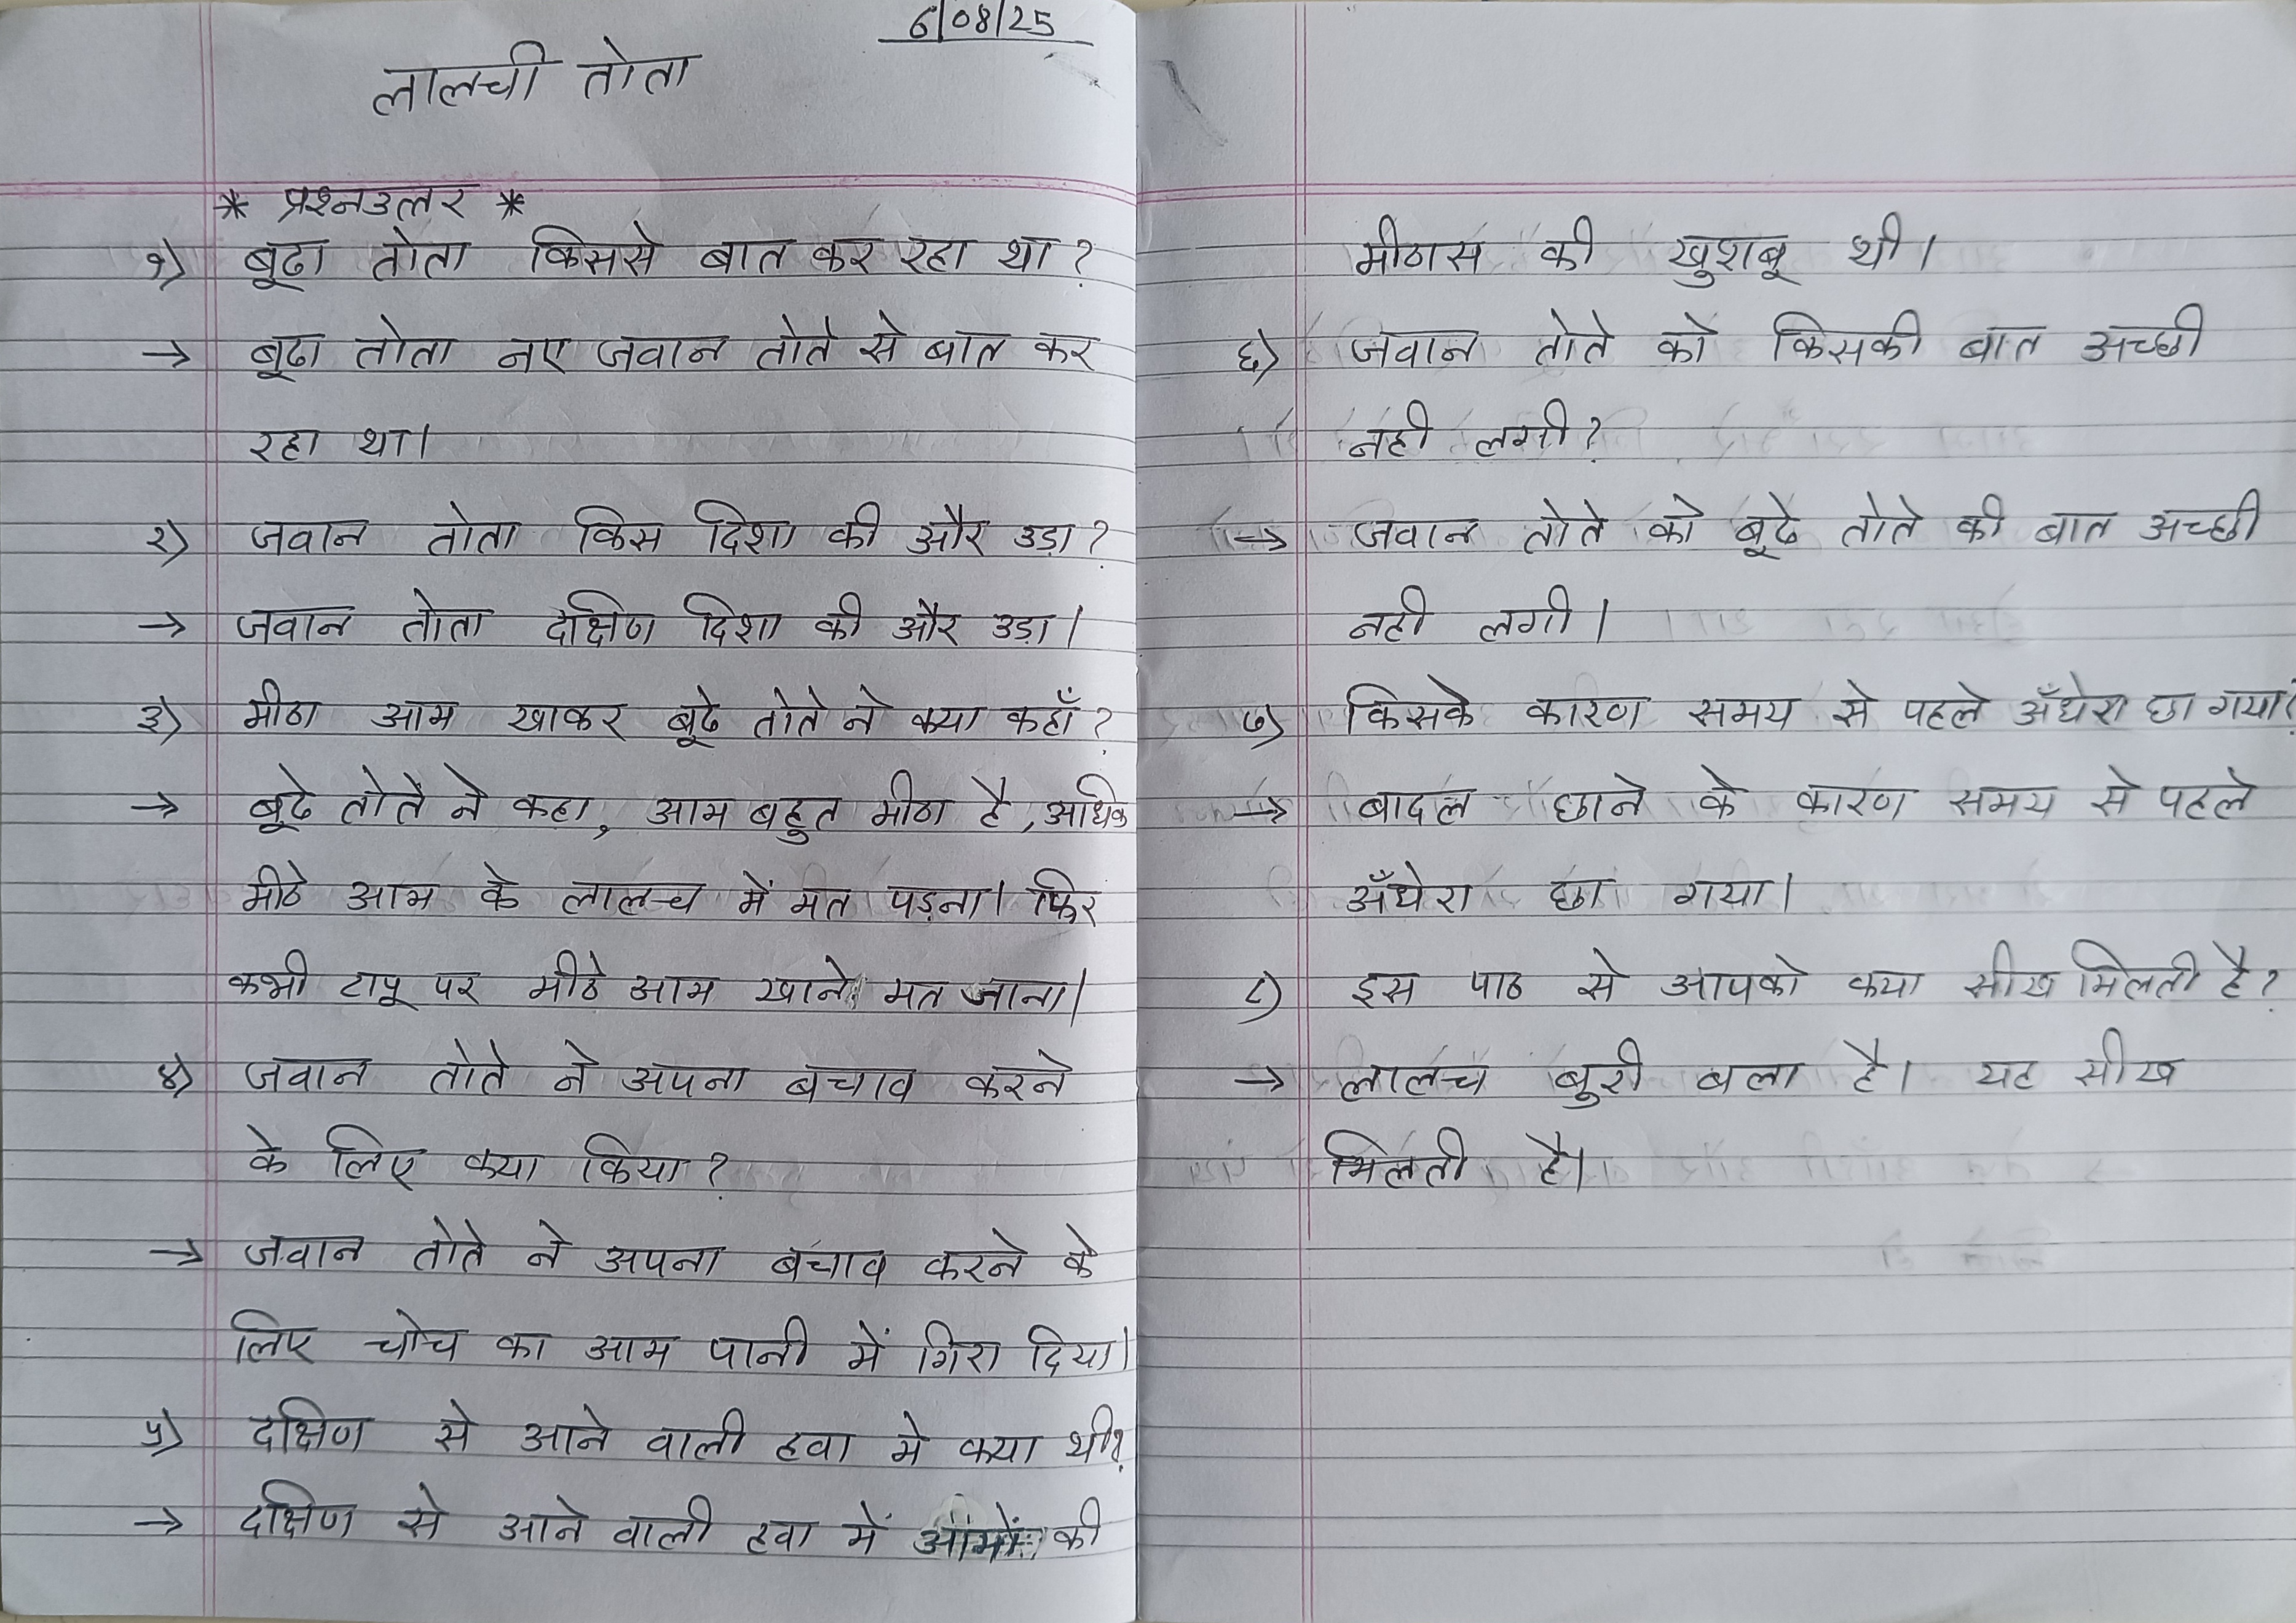 6/08/25
लालची तोता
* प्रश्नउत्तर *
१) बूढा तोता किससे बात कर रहा था?
→ बूढा तोता नए जवान तोते से बात कर
रहा था।
२) जवान तोता किस दिशा की और उड़ा?
→ जवान तोता दक्षिण दिशा की और उड़ा।
३) मीठा आम खाकर बूढे तोते ने क्या कहाँ?
→ बूढे तोते ने कहा, आम बहुत मीठा है, अधिक
मीठे आम के लालच में मत पड़ना। फिर
कभी टापू पर मीठे आम खाने मत जाना।
४) जवान तोते ने अपना बचाव करने
के लिए क्या किया?
→ जवान तोते ने अपना बचाव करने के
लिए चोच का आम पानी में गिरा दिया।
५) दक्षिण से आने वाली हवा मे क्या थी?
→ दक्षिण से आने वाली हवा में आमों की
मीठास की खुशबू थी।
६) जवान तोते को किसकी बात अच्छी
नही लगी?
→ जवान तोते को बूढे तोते की बात अच्छी
नही लगी।
७) किसके कारण समय से पहले अँधेरा छा गया?
→ बादल छाने के कारण समय से पहले
अँधेरा छा गया।
८) इस पाठ से आपको क्या सीख मिलती है?
→ लालच बुरी बला है। यह सीख
मिलती है।